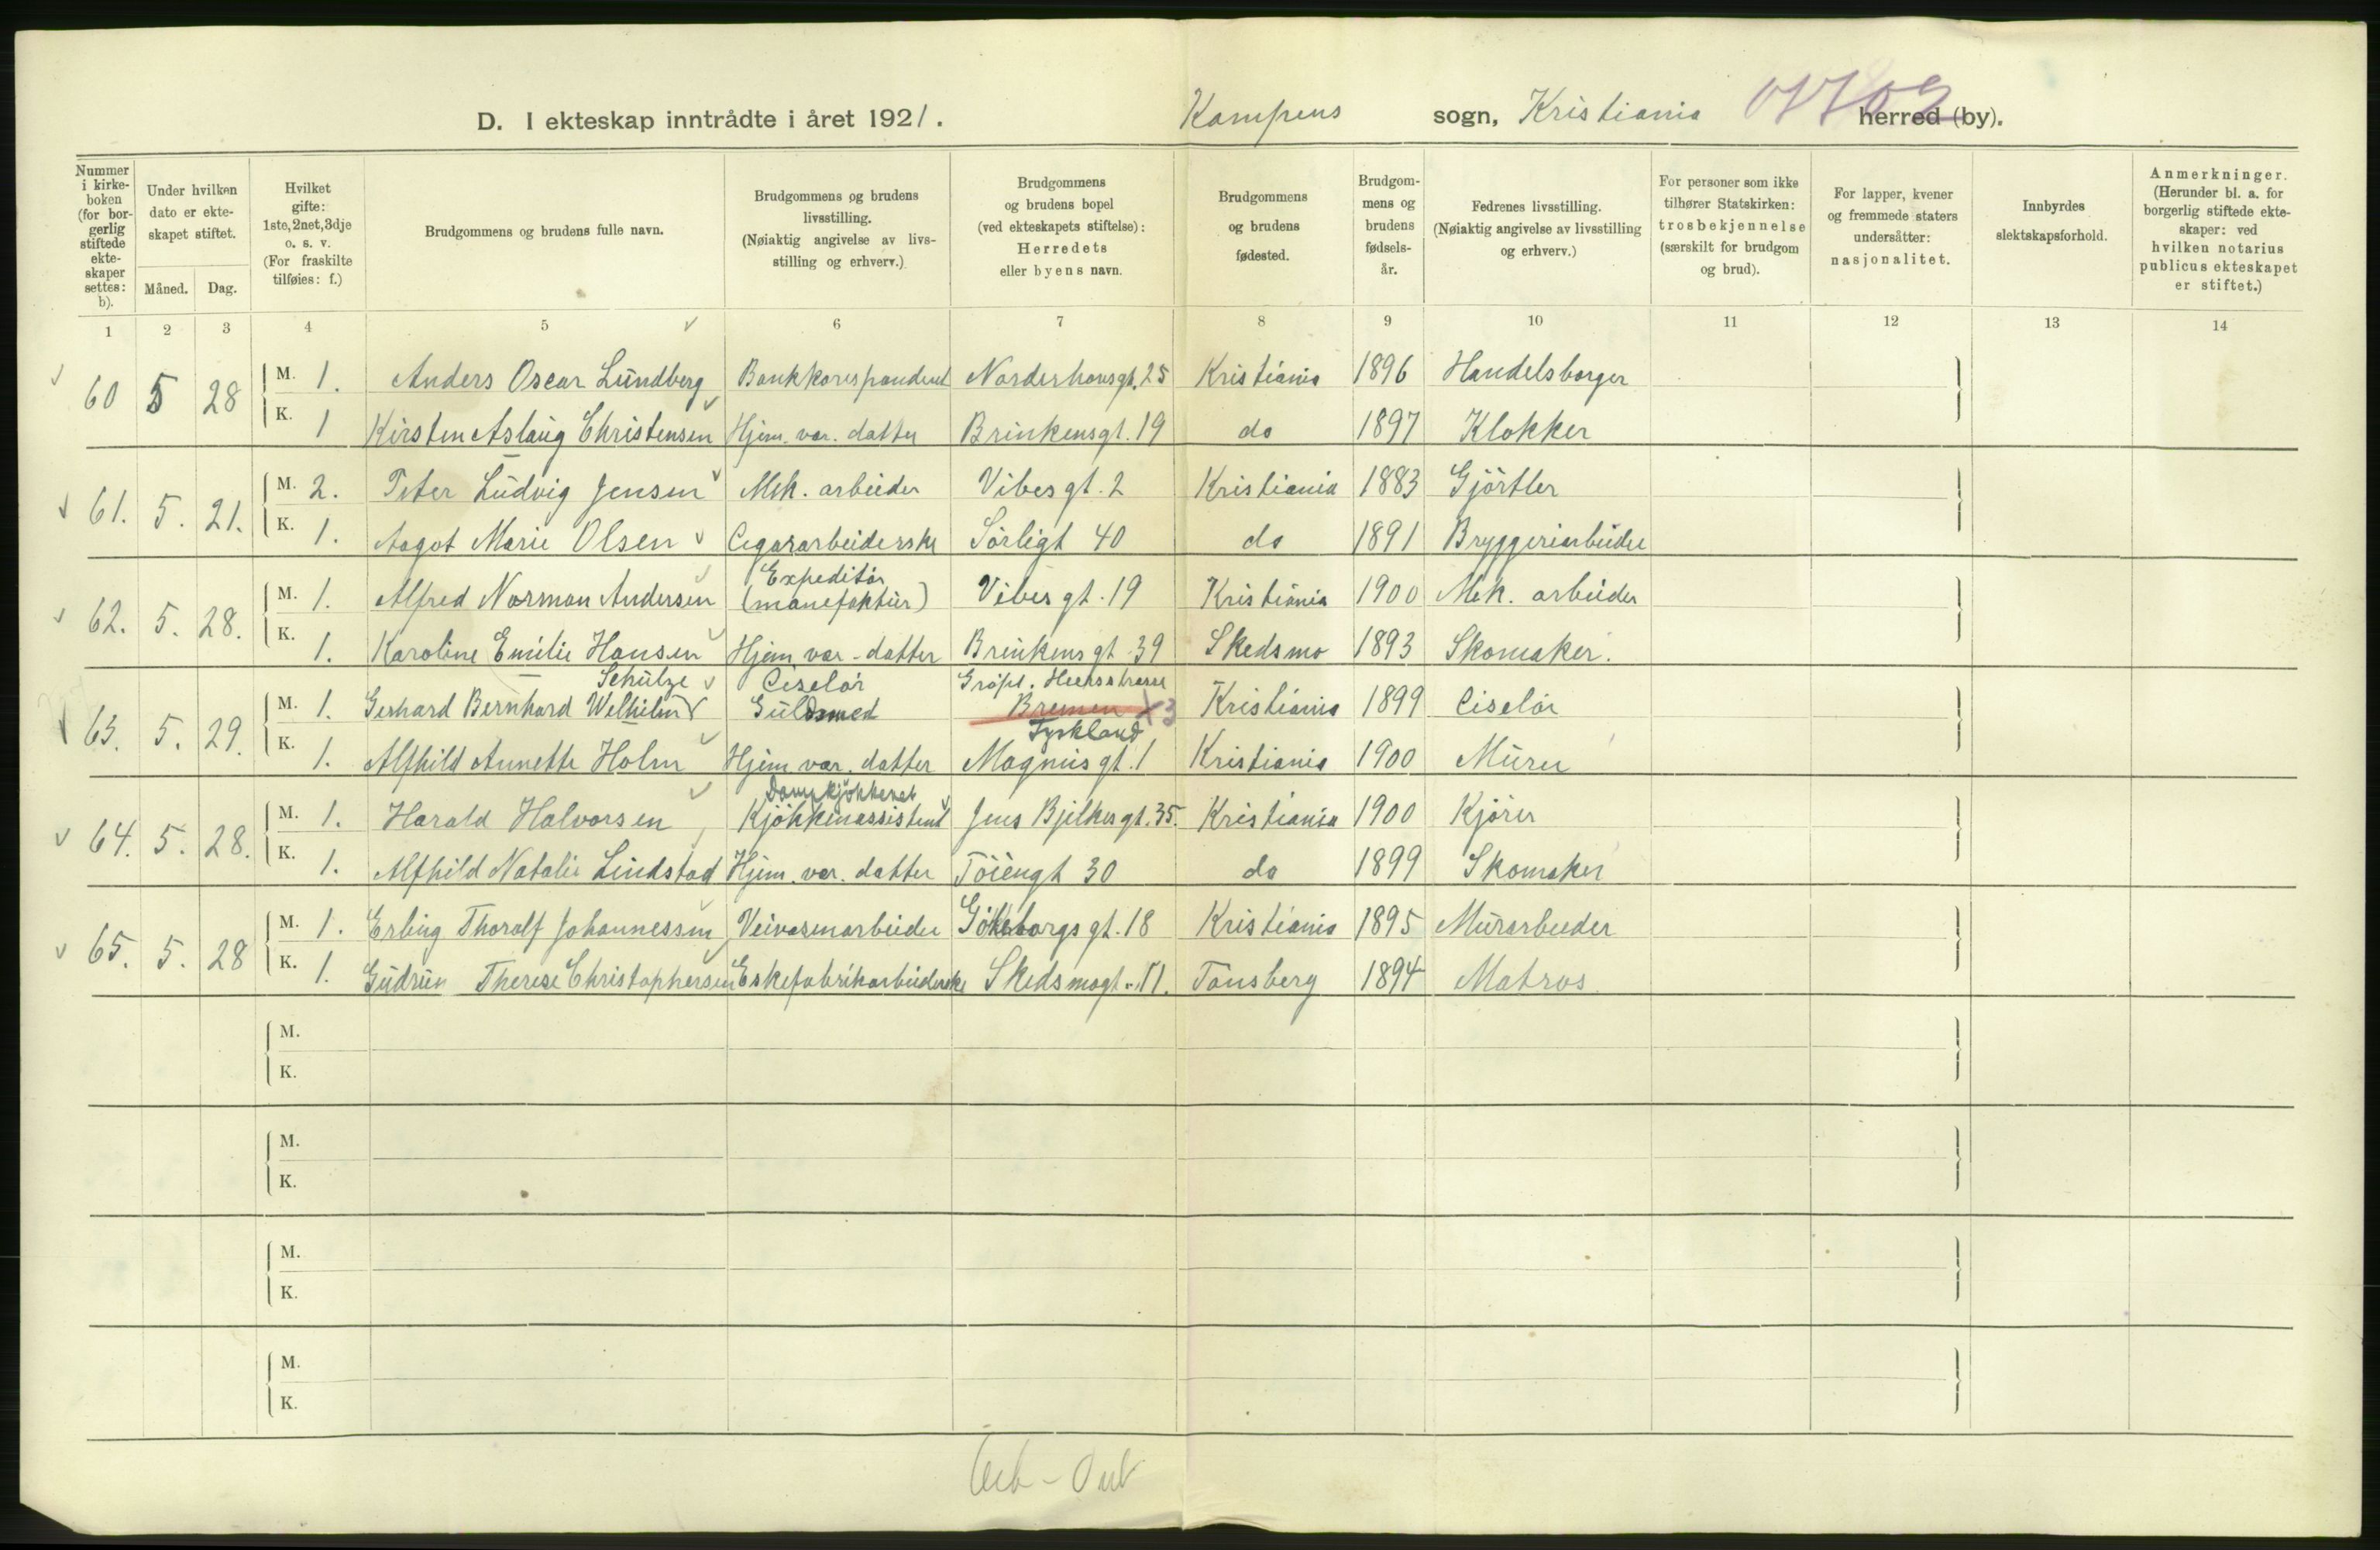 D. I ekteskap inntrådte i året 1921. Kampens sogn, Kristiania herred (by).
Nummer i kirkeboken (for borgerlig stiftede ekteskaper settes: b).
Under hvilken dato er ekteskapet stiftet.
Måned. Dag.
Hvilket gifte: 1ste, 2net, 3dje o. s. v. (For fraskilte tilføies: f.)
Brudgommens og brudens fulle navn.
Brudgommens og brudens livsstilling. (Nøiaktig angivelse av livsstilling og erhverv.)
Brudgommens og brudens bopel (ved ekteskapets stiftelse): Herredets eller byens navn.
Brudgommens og brudens fødested.
Brudgommens og brudens fødselsår.
Fedrenes livsstilling. (Nøiaktig angivelse av livsstilling og erhverv.)
For personer som ikke tilhører Statskirken: trosbekjennelse (særskilt for brudgom og brud).
For lapper, kvener og fremmede staters undersåtter: nasjonalitet.
Innbyrdes slektskapsforhold.
Anmerkninger. (Herunder bl. a. for borgerlig stiftede ekteskaper: ved hvilken notarius publicus ekteskapet er stiftet.)
1 2 3 4 5 6 7 8 9 10 11 12 13 14
60 5 28 M. 1. Anders Oscar Lundberg Bankkorespondent Norderhovsgt. 25 Kristiania 1896 Handelsborger
K. 1 Kirsten Aslaug Christensen Hjem. vær. datter Brinkensgt. 19 do 1897 Klokker
61. 5. 21. M. 2. Peter Ludvig Jensen Mek. arbeider Vibes gt. 2 Kristiania 1883 Gjörtler
K. 1. Aagot Marie Olsen Cigararbeiderske Sörligt 40 do 1891 Bryggeriarbeider
Expeditör
62. 5. 28. M. 1. Alfred Norman Andersen (manefaktur) Vibes gt. 19 Kristiania 1900 Mek. arbeider
K. 1. Karoline Emilie Hansen Hjem. vær. datter Brinkens gt. 39 Skedsmo 1893 Skomaker.
Schulze Ciselör
63. 5. 29. M. 1. Gerhard Bernhard Welhilm Guldsmed Bremen x3 Kristiania 1899 Ciselör
Tyskland
K. 1. Alfhild Annette Holm Hjem. vær. datter Magnus gt. 1 Kristiania 1900 Murer
Dampkjökkenet
64. 5. 28. M. 1. Harald Halvorsen Kjökkenassistent Jens Bjelkes gt. 35. Kristiania 1900 Kjörer
K. 1. Alfhild Natalie Lindstad Hjem. vær. datter Töiengt 30 do 1899 Skomaker
65. 5. 28 M. 1. Erling Thoralf Johannessen Veivesenarbeider Göteborgs gt. 18 Kristiania 1895 Murarbeider
K. 1. Gudrun Therese Christophersen Eskefabrikarbeiderske Skedsmogt. 11. Tönsberg 1894 Matros
M.
K.
M.
K.
M.
K.
M.
K.